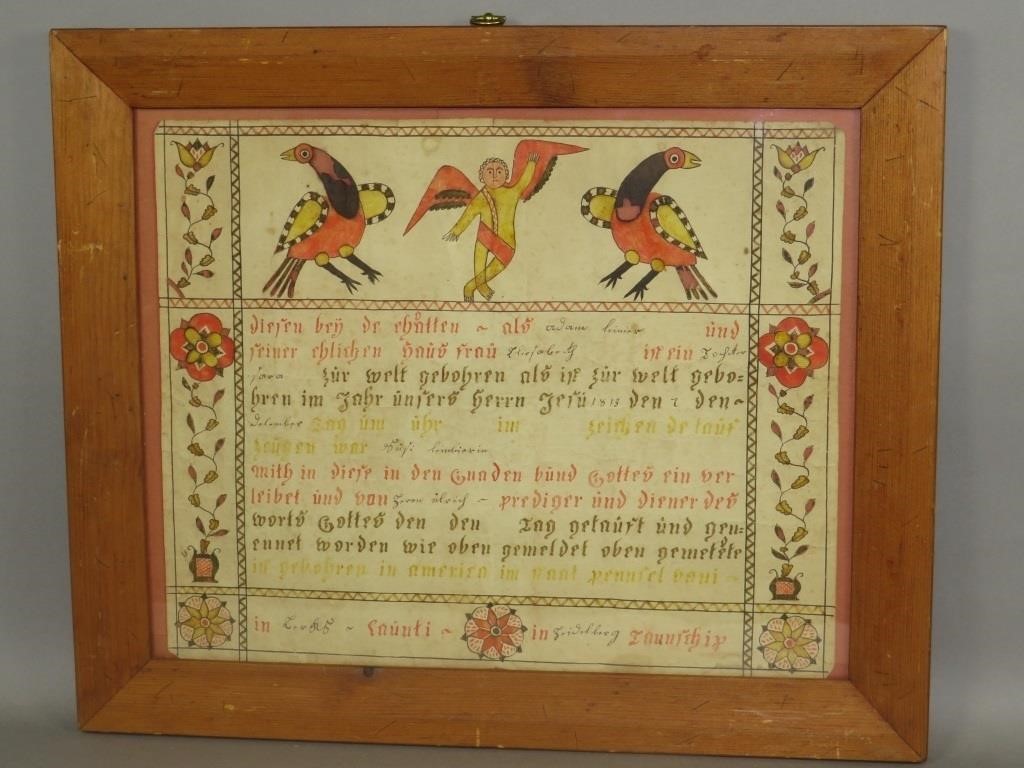 diesen beÿ de ehůtten ~ als adam ůnd
seiner ehlichen Haůs fraů Eliesabeth ist ein Tochter
sara zůr welt gebohren als ist zůr welt gebo=
hren im Jahr ůnsers Herrn Jesů 181 den den~
Tag ům ůhr im zeichen de taůf
zeůgen war
mith in diese in den Gnaden bůnd Gottes ein ver
leibet ůnd von Herrn ůlrich ~ prediger ůnd diener des
worts Gottes den den Tag getaůft ůnd gen=
ennet worden wie oben gemeldet oben
ist gebohren in america im staat pennsel vani ~
in Berks ~ Caůnti ~ in Heidelberg Taunschip